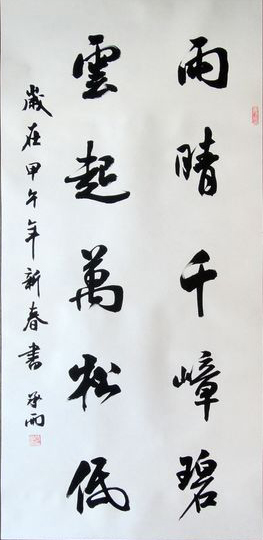 雨晴千嶂碧
雲起萬松低
歲在甲午年新春書